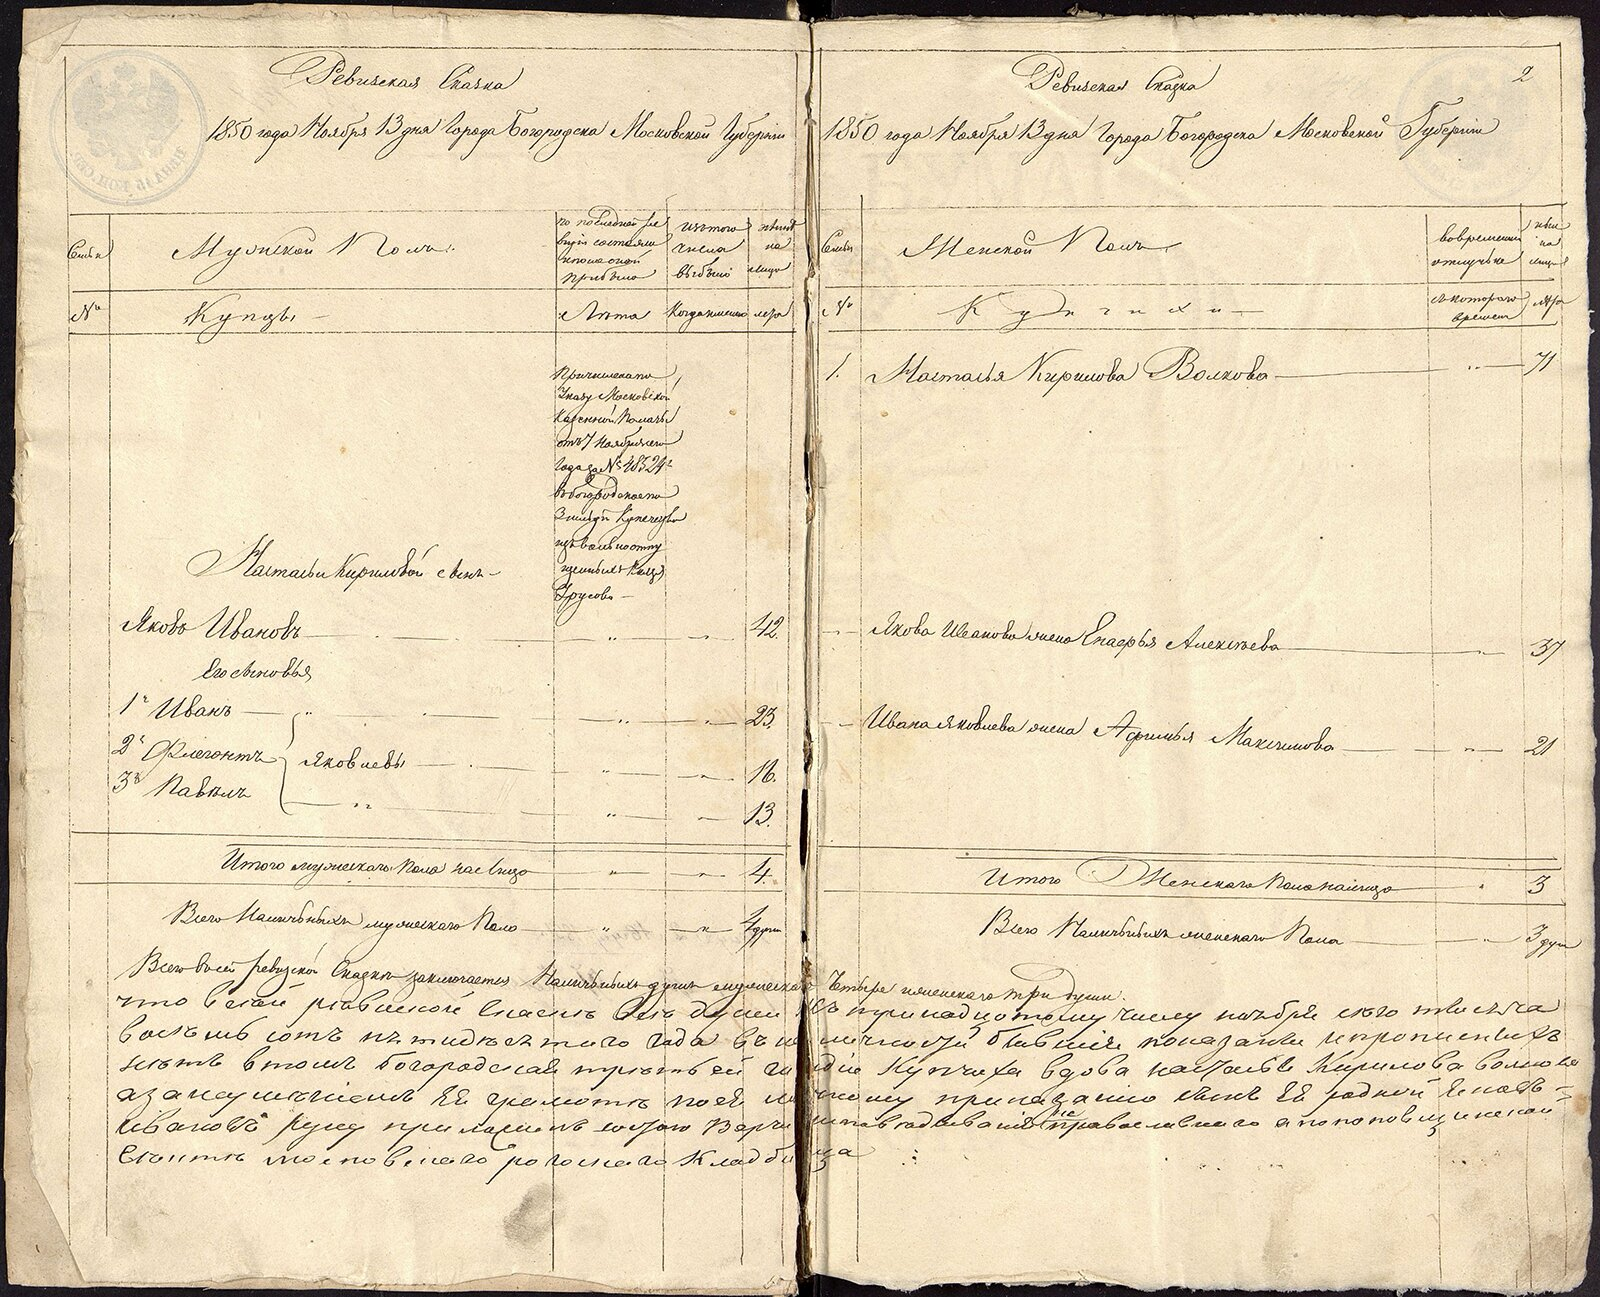 Ревизская Сказка
1850 года Ноября 13 дня Города Богородска Московской Губернiи
Семьи
Мужской Полъ.
по последней ре
визiи состояло
и после оной
прибыло
изъ того
числа
выбыло
ныне
на
лицо
№
Купцы
Лѣта
Когда именно
лѣта
Причислена по
Указу Московской
Казенной Палаты
отъ 7 Ноября сего
года за № 48324
въ Богородское по
3 гильдiи Купечество
изъ вольноотпу
щенныхъ
Трусова
Настасьи Кириловой сынъ
Яковъ Ивановъ 42.
Его сыновья
1й Иванъ 23.
2й Флегонтъ Яковлевы 16.
3й Павелъ 13.
Итого мужескаго пола на лицо 4.
Всего Наличныхъ мужескаго Пола 4 души
2
Ревизская Сказка
1850 года Ноября 13 дня Города Богородска Московской Губернiи
Семьи
Женской Полъ.
во временной
отлучке
ныне
на
лицо
№
Купчихи
съ котораго
времени
лѣта
1. Настасья Кирилова Волкова 71
Якова Иванова жена Енафья Алексѣева 37
Ивана Яковлева жена Афимья Максимова 21
Итого Женскаго Пола на лицо 3
Всего Наличныхъ женскаго Пола 3 души
Всего в сей ревизской Сказке заключается Наличныхъ душъ мужескаго Четыре женскаго три души.
что в сей ревиской скаске все души къ принадцотому числу ноября сего тысеча
восемь сотъ петидесетого года въ наличности бывшiе показаны и прописныхъ
нетъ в томъ богородская третьей гилдiи Купчиха вдова настасья Кирилова волкова
а за неумениемъ ЕЯ грамоте по ея личному приказанию сынъ ЕЯ родной Яковъ
Ивановъ руку приложилъ
московскаго рогоскаго Кладбища